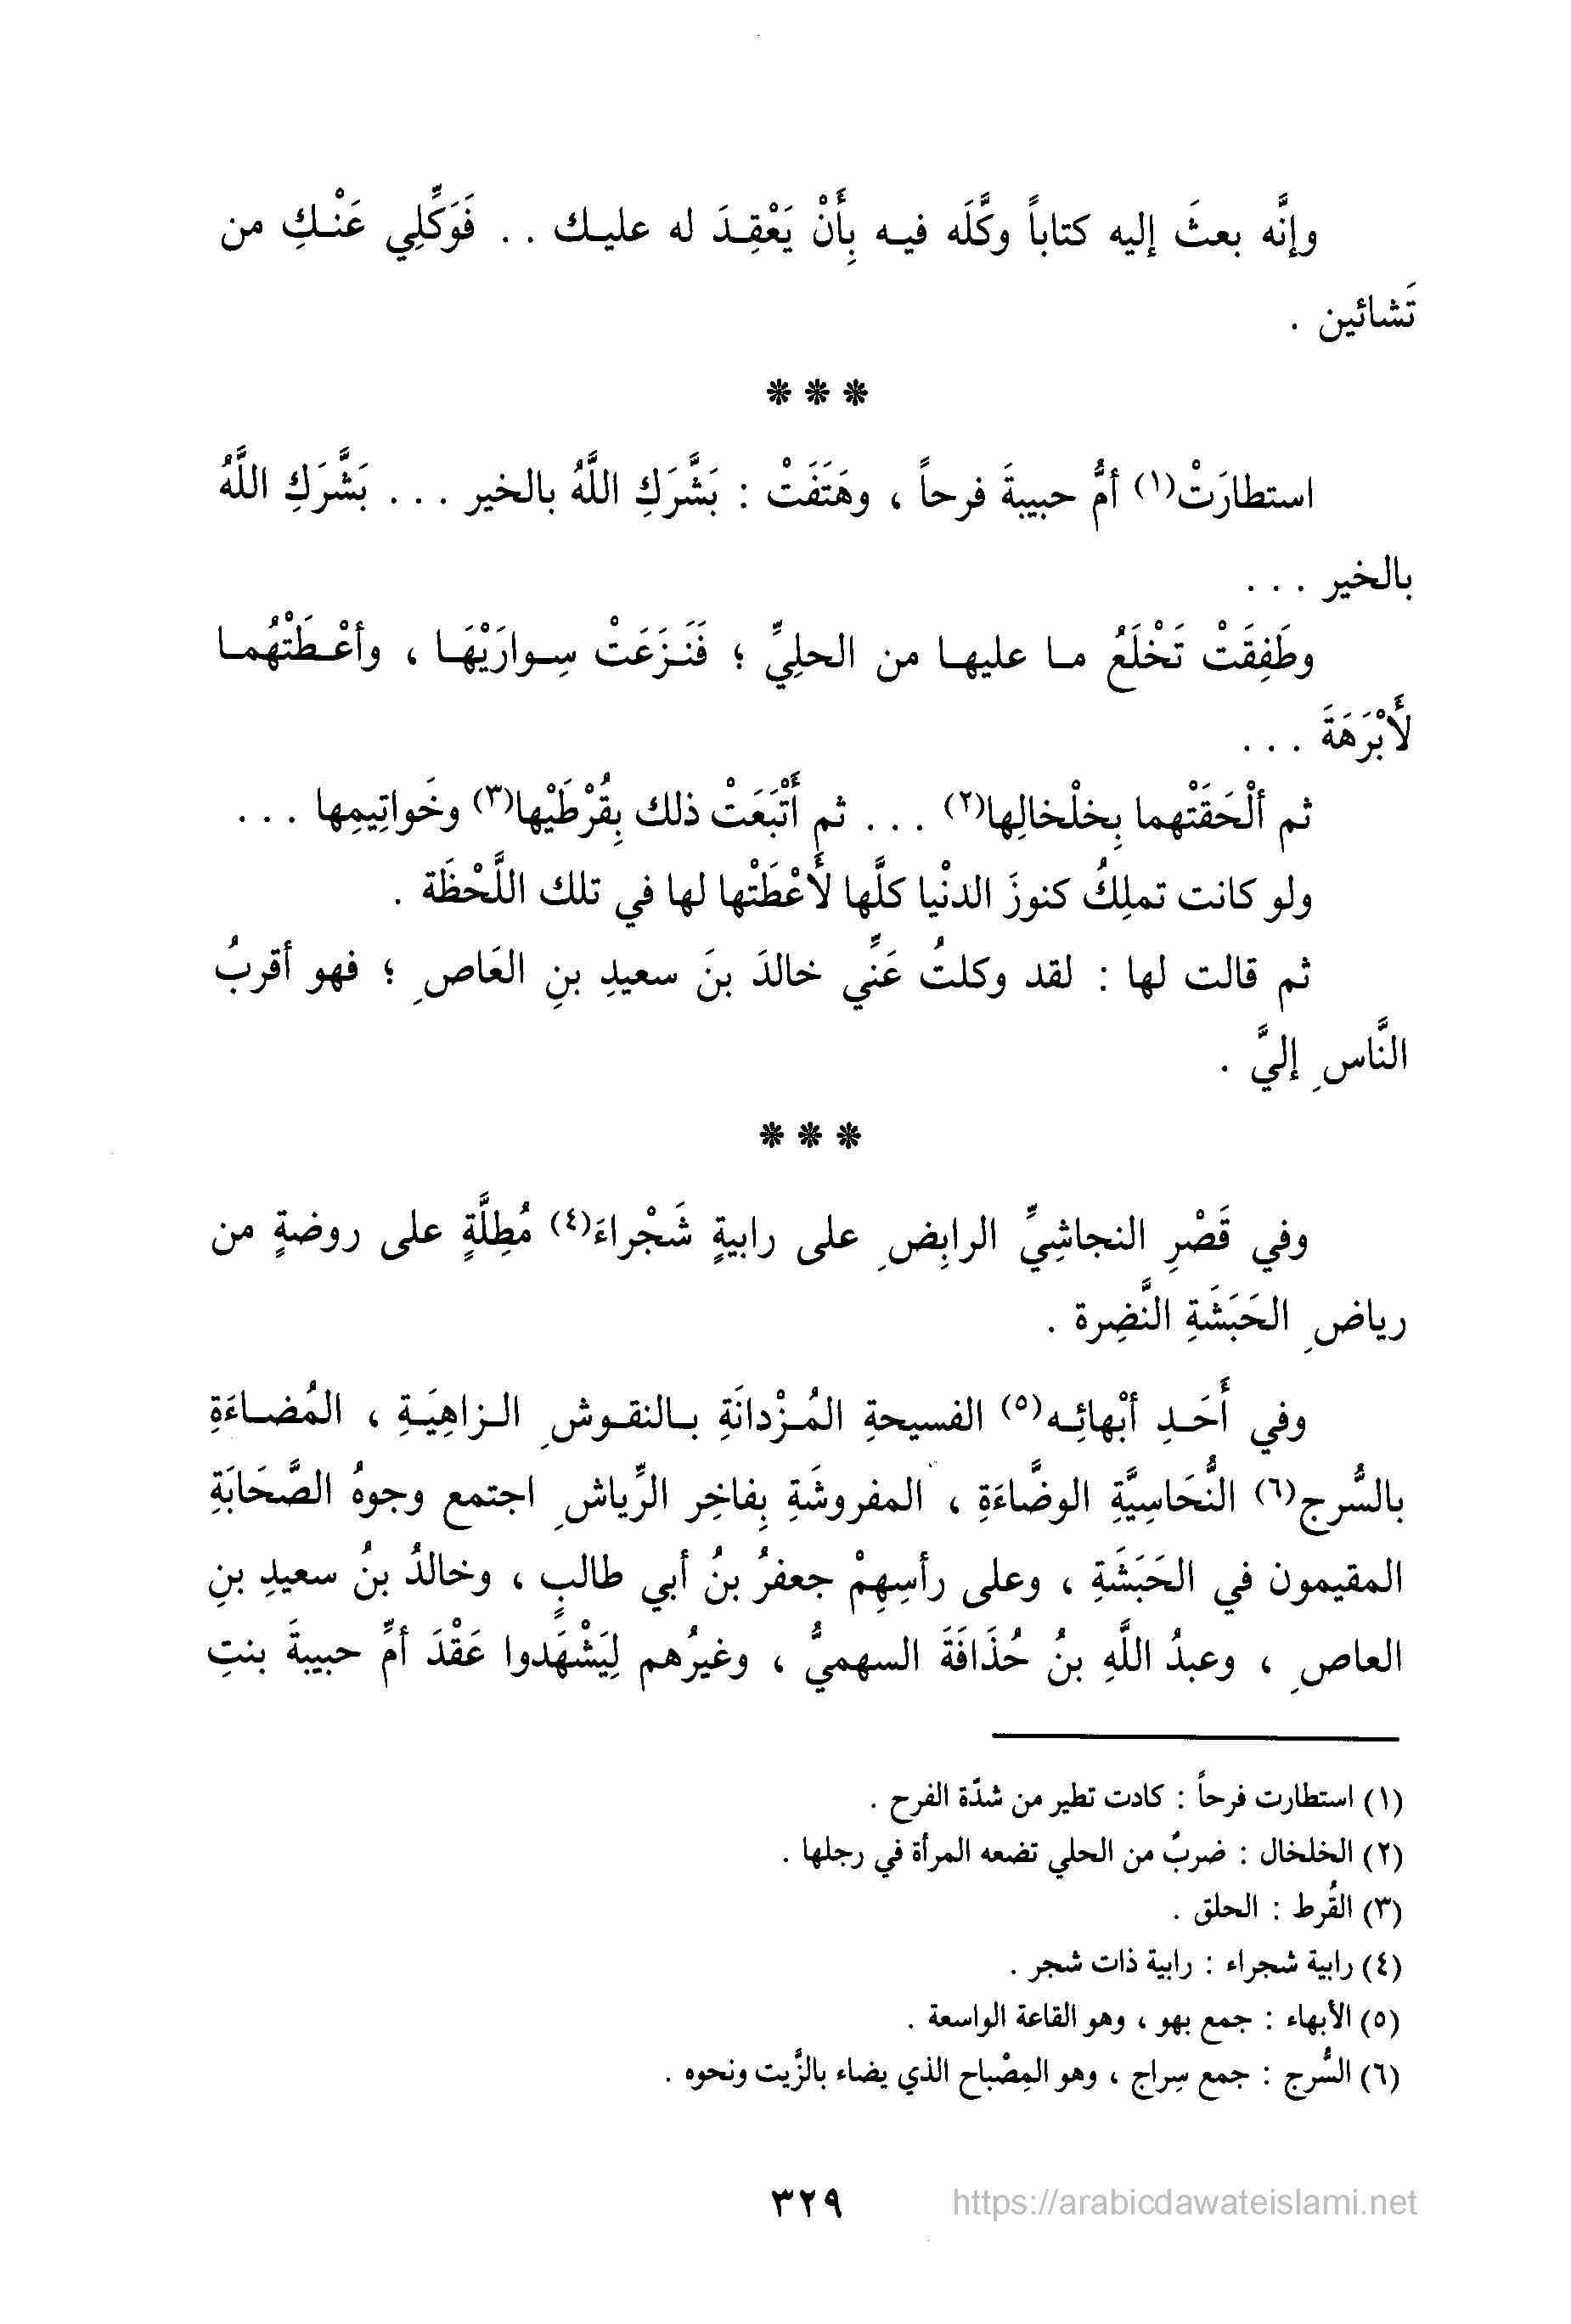 وإنَّه بعثَ إليه كتاباً وكَّلَه فيه بِأَنْ يَعْقِدَ له عليك . . فَوَكِّلِي عَنْكِ من
تَشائين .
* * *
استطارَتْ(١) أمُّ حبيبةَ فرحاً ، وهَتَفَتْ : بَشَّرَكِ اللَّهُ بالخير . . . بَشَّرَكِ اللَّهُ
بالخير . . .
وطَفِقَتْ تَخْلَعُ ما عليها من الحلِيِّ ؛ فَنَزَعَتْ سِوارَيْهَا ، وأعْطَتْهُما
لأَبْرَهَةَ . . .
ثم ألْحَقَتْهما بِخلْخالِها(٢) . . . ثم أَتْبَعَتْ ذلك بِقُرْطَيْها(٣) وخَواتِيمِها . . .
ولو كانت تملِكُ كنوزَ الدنْيا كلَّها لأَعْطَتْها لها في تلك اللَّحْظَة .
ثم قالت لها : لقد وكلتُ عَنِّي خالدَ بنَ سعيدِ بنِ العَاصِ ؛ فهو أقربُ
النَّاسِ إليَّ .
* * *
وفي قَصْرِ النجاشِيِّ الرابِضِ على رابيةٍ شَجْراءَ(٤) مُطِلَّةٍ على روضةٍ من
رياضِ الحَبَشَةِ النَّضِرة .
وفي أَحَدِ أبْهائِه(٥) الفسيحةِ المُزْدانَةِ بالنقوشِ الزاهِيَةِ ، المُضاءَةِ
بالسُّرج(٦) النُّحَاسِيَّةِ الوضَّاءَةِ ، المفروشَةِ بِفاخِر الرِّياشِ اجتمع وجوهُ الصَّحَابَةِ
المقيمون في الحَبَشَةِ ، وعلى رأسِهِمْ جعفرُ بنُ أبي طالبٍ ، وخالدُ بنُ سعيدِ بنِ
العاصِ ، وعبدُ اللَّهِ بنُ حُذَافَةَ السهميُّ ، وغيرُهم لِيَشْهَدوا عَقْدَ أمِّ حبيبةَ بنتِ
(١) استطارت فرحاً : كادت تطير من شدّة الفرح .
(٢) الخلخال : ضربٌ من الحلي تضعه المرأة في رجلها .
(٣) القُرط : الحلق .
(٤) رابية شجراء : رابية ذات شجر .
(٥) الأبهاء : جمع بهو ، وهو القاعة الواسعة .
(٦) السُّرج : جمع سِراج ، وهو المِصْباح الذي يضاء بالزَّيت ونحوه .
٣٢٩
https://arabicdawateislami.net